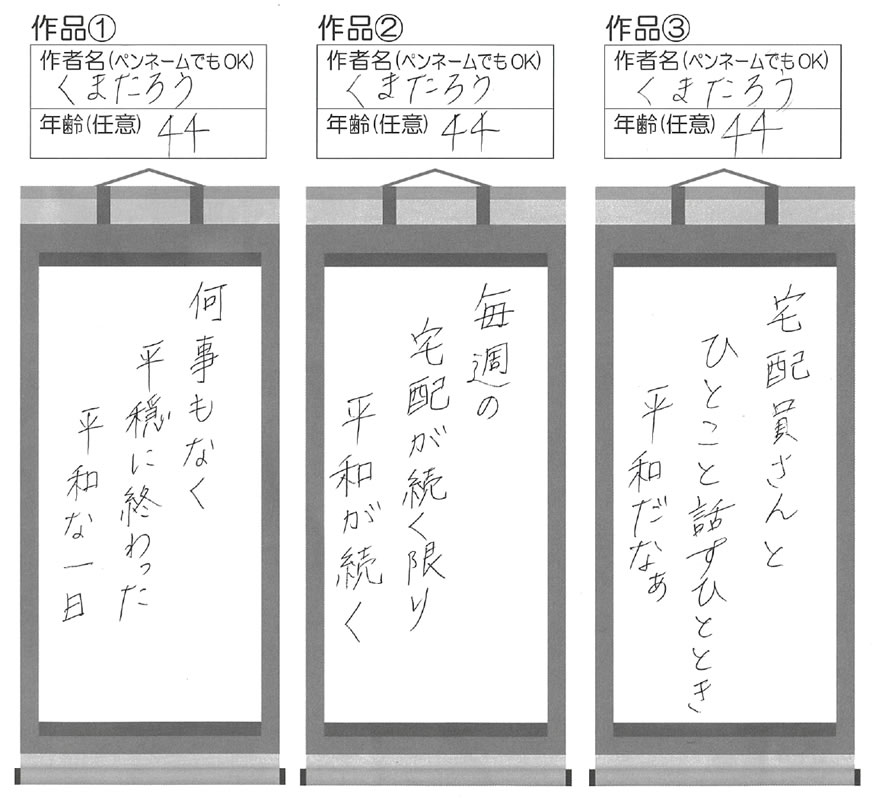 作品①
作者名(ペンネームでもOK)
くまたろう
年齢(任意) 44
何事もなく
平穏に終わった
平和な一日
作品②
作者名(ペンネームでもOK)
くまたろう
年齢(任意) 44
毎週の
宅配が続く限り
平和が続く
作品③
作者名(ペンネームでもOK)
くまたろう
年齢(任意) 44
宅配員さんと
ひとこと話すひととき
平和だなぁ